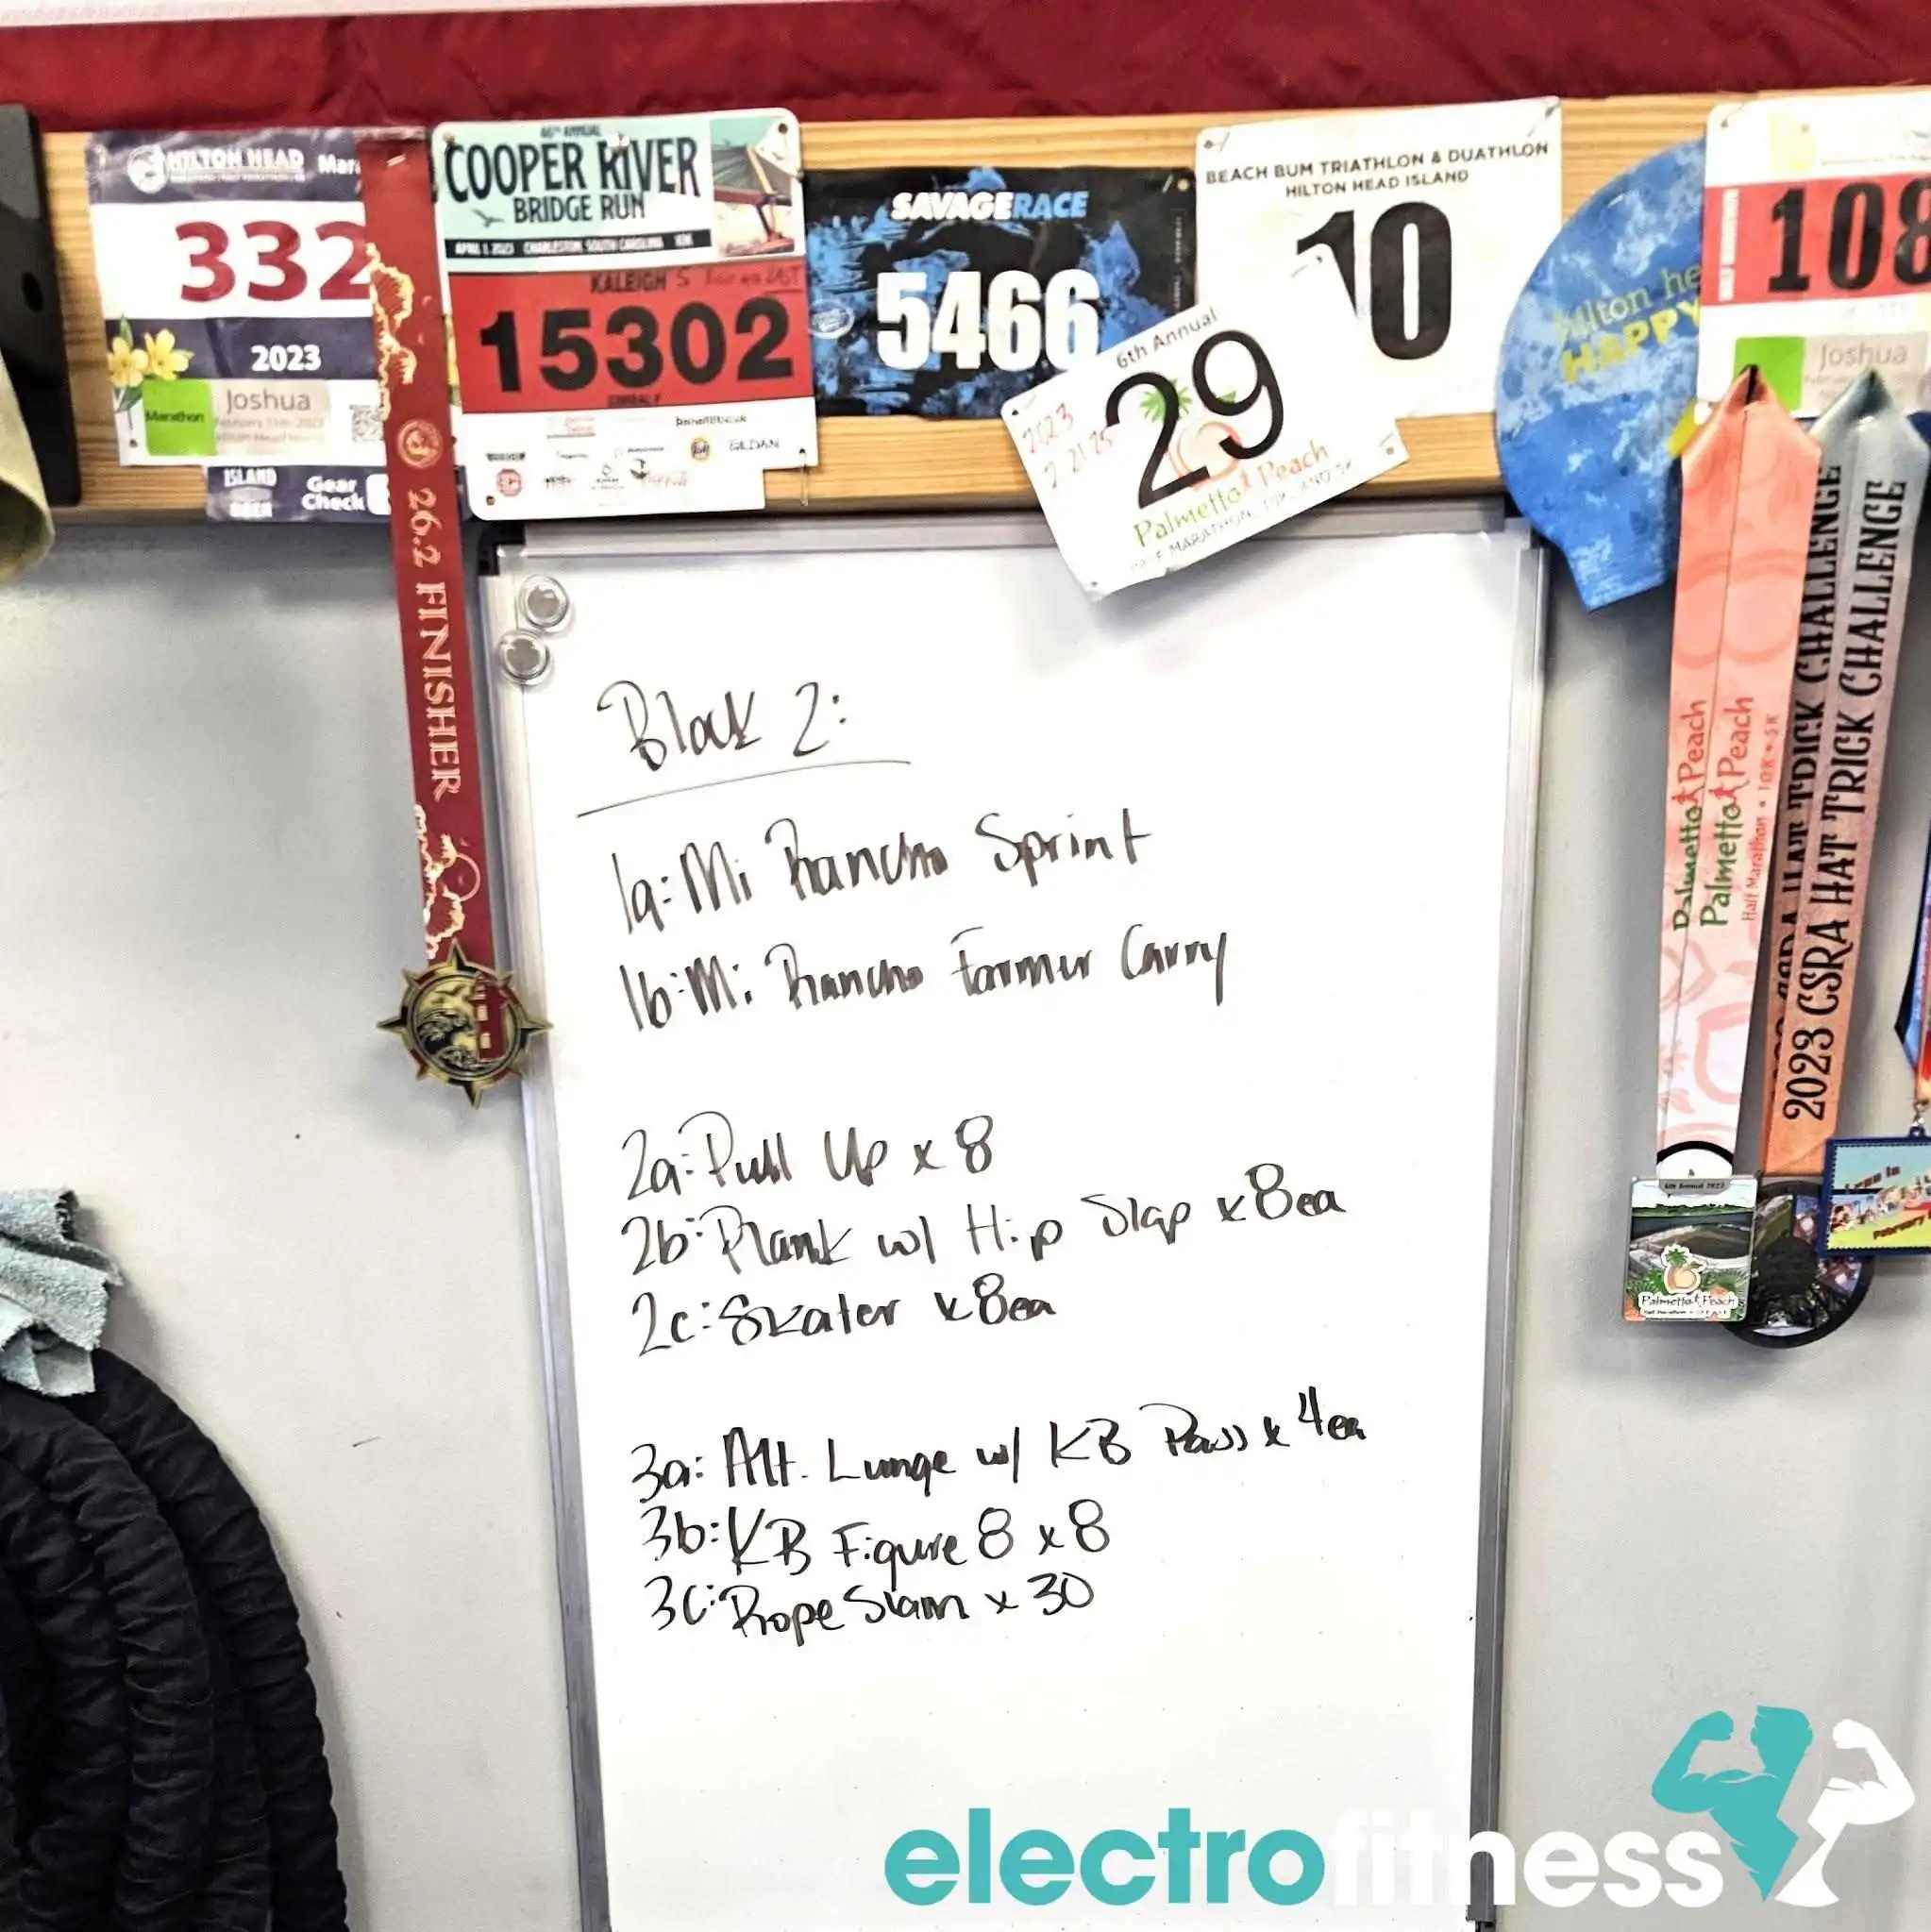 HILTON HEAD
332
2023
Marathon
Joshua
ISLAND
Gear
Check
26.2 FINISHER
46TH ANNUAL
COOPER RIVER
BRIDGE RUN
APRIL 1, 2023 CHARLESTON, SOUTH CAROLINA 10K
KALEIGH S
15302
GILDAN
SAVAGERACE
5466
BEACH BUM TRIATHLON & DUATHLON
HILTON HEAD ISLAND
10
6th Annual
29
2023
2:21:25
Palmetto Peach
hilton he
HAPPY
108
Joshua
Palmetto Peach
Palmetto Peach
Half Marathon • 10K • 5K
2023 CSRA HAT TRICK CHALLENGE
HAT TRICK CHALLENGE
Palmetto Peach
Block 2:
1a: Mi Rancho Sprint
1b: Mi Rancho Farmer Carry
2a: Pull Up x 8
2b: Plank w/ Hip Slap x 8ea
2c: Skater x 8ea
3a: Alt. Lunge w/ KB Pass x 4ea
3b: KB Figure 8 x 8
3c: Rope Slam x 30
electrofitness